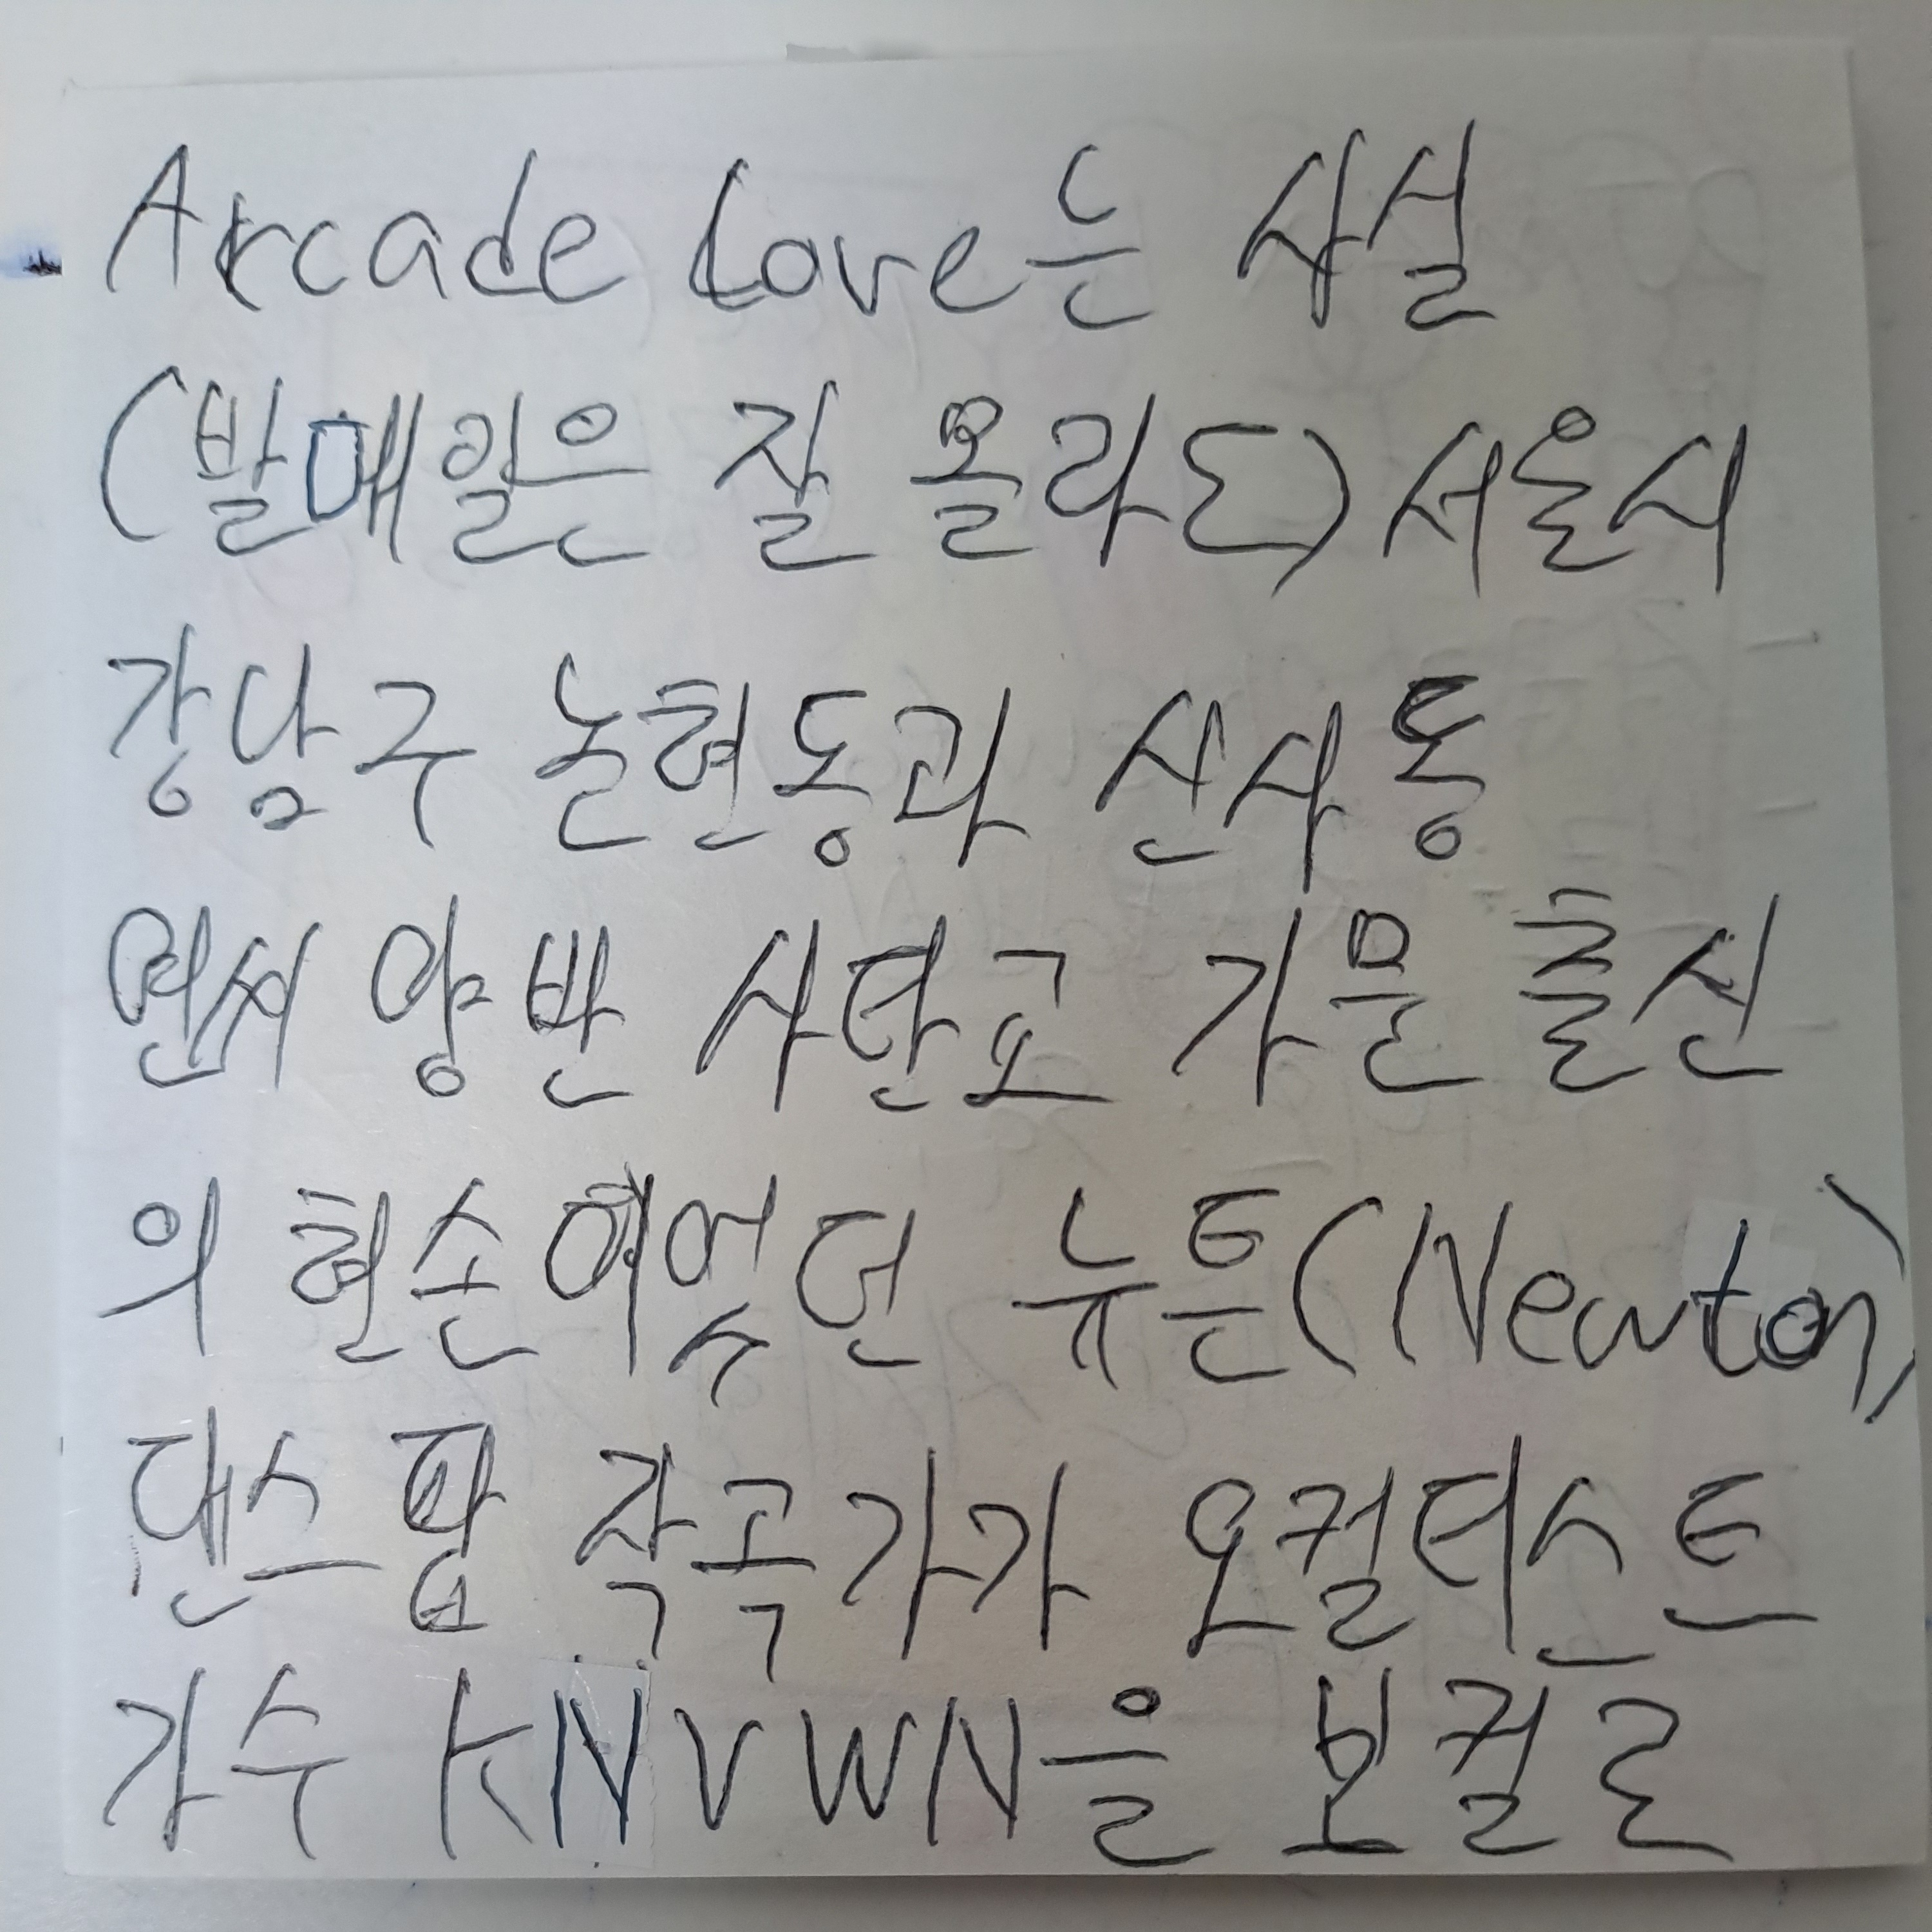 Arcade Love는 사실
(발매일은 잘 몰라도) 서울시
강남구 논현동과 신사동
연씨 양반 사탄고 가문 출신
의 현손이었던 뉴튼(Newton)
댄스팝 작곡가가 오컬티스트
가수 KNVWN을 보컬로